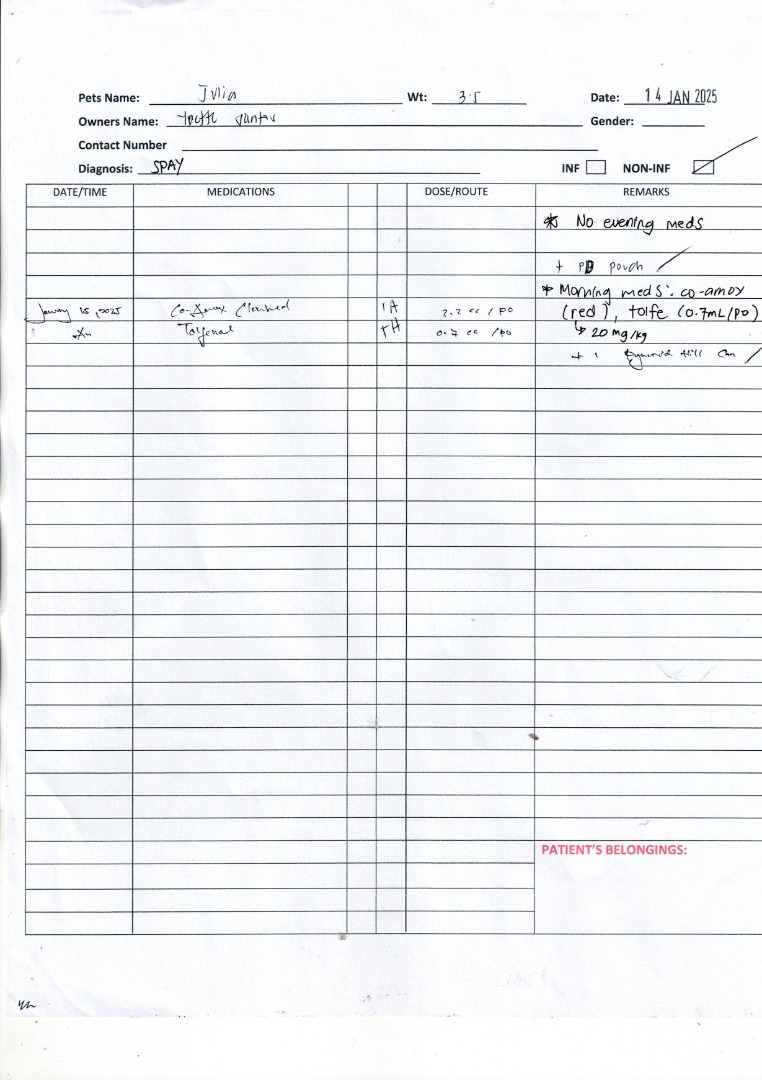 Pets Name: Julia Wt: 3.5 Date: 14 JAN 2025
Owners Name: Gender:
Contact Number
Diagnosis: SPAY INF NON-INF
DATE/TIME MEDICATIONS DOSE/ROUTE REMARKS
* No evening meds
+ PD pouch
* Morning meds: co-amox
January 15, 2025 Co-Amox 2.2 cc / PO (red), tolfe (0.7mL/PO)
Tolfenal 0.7 cc / PO ↳ 20 mg/kg
+ 1
PATIENT'S BELONGINGS: